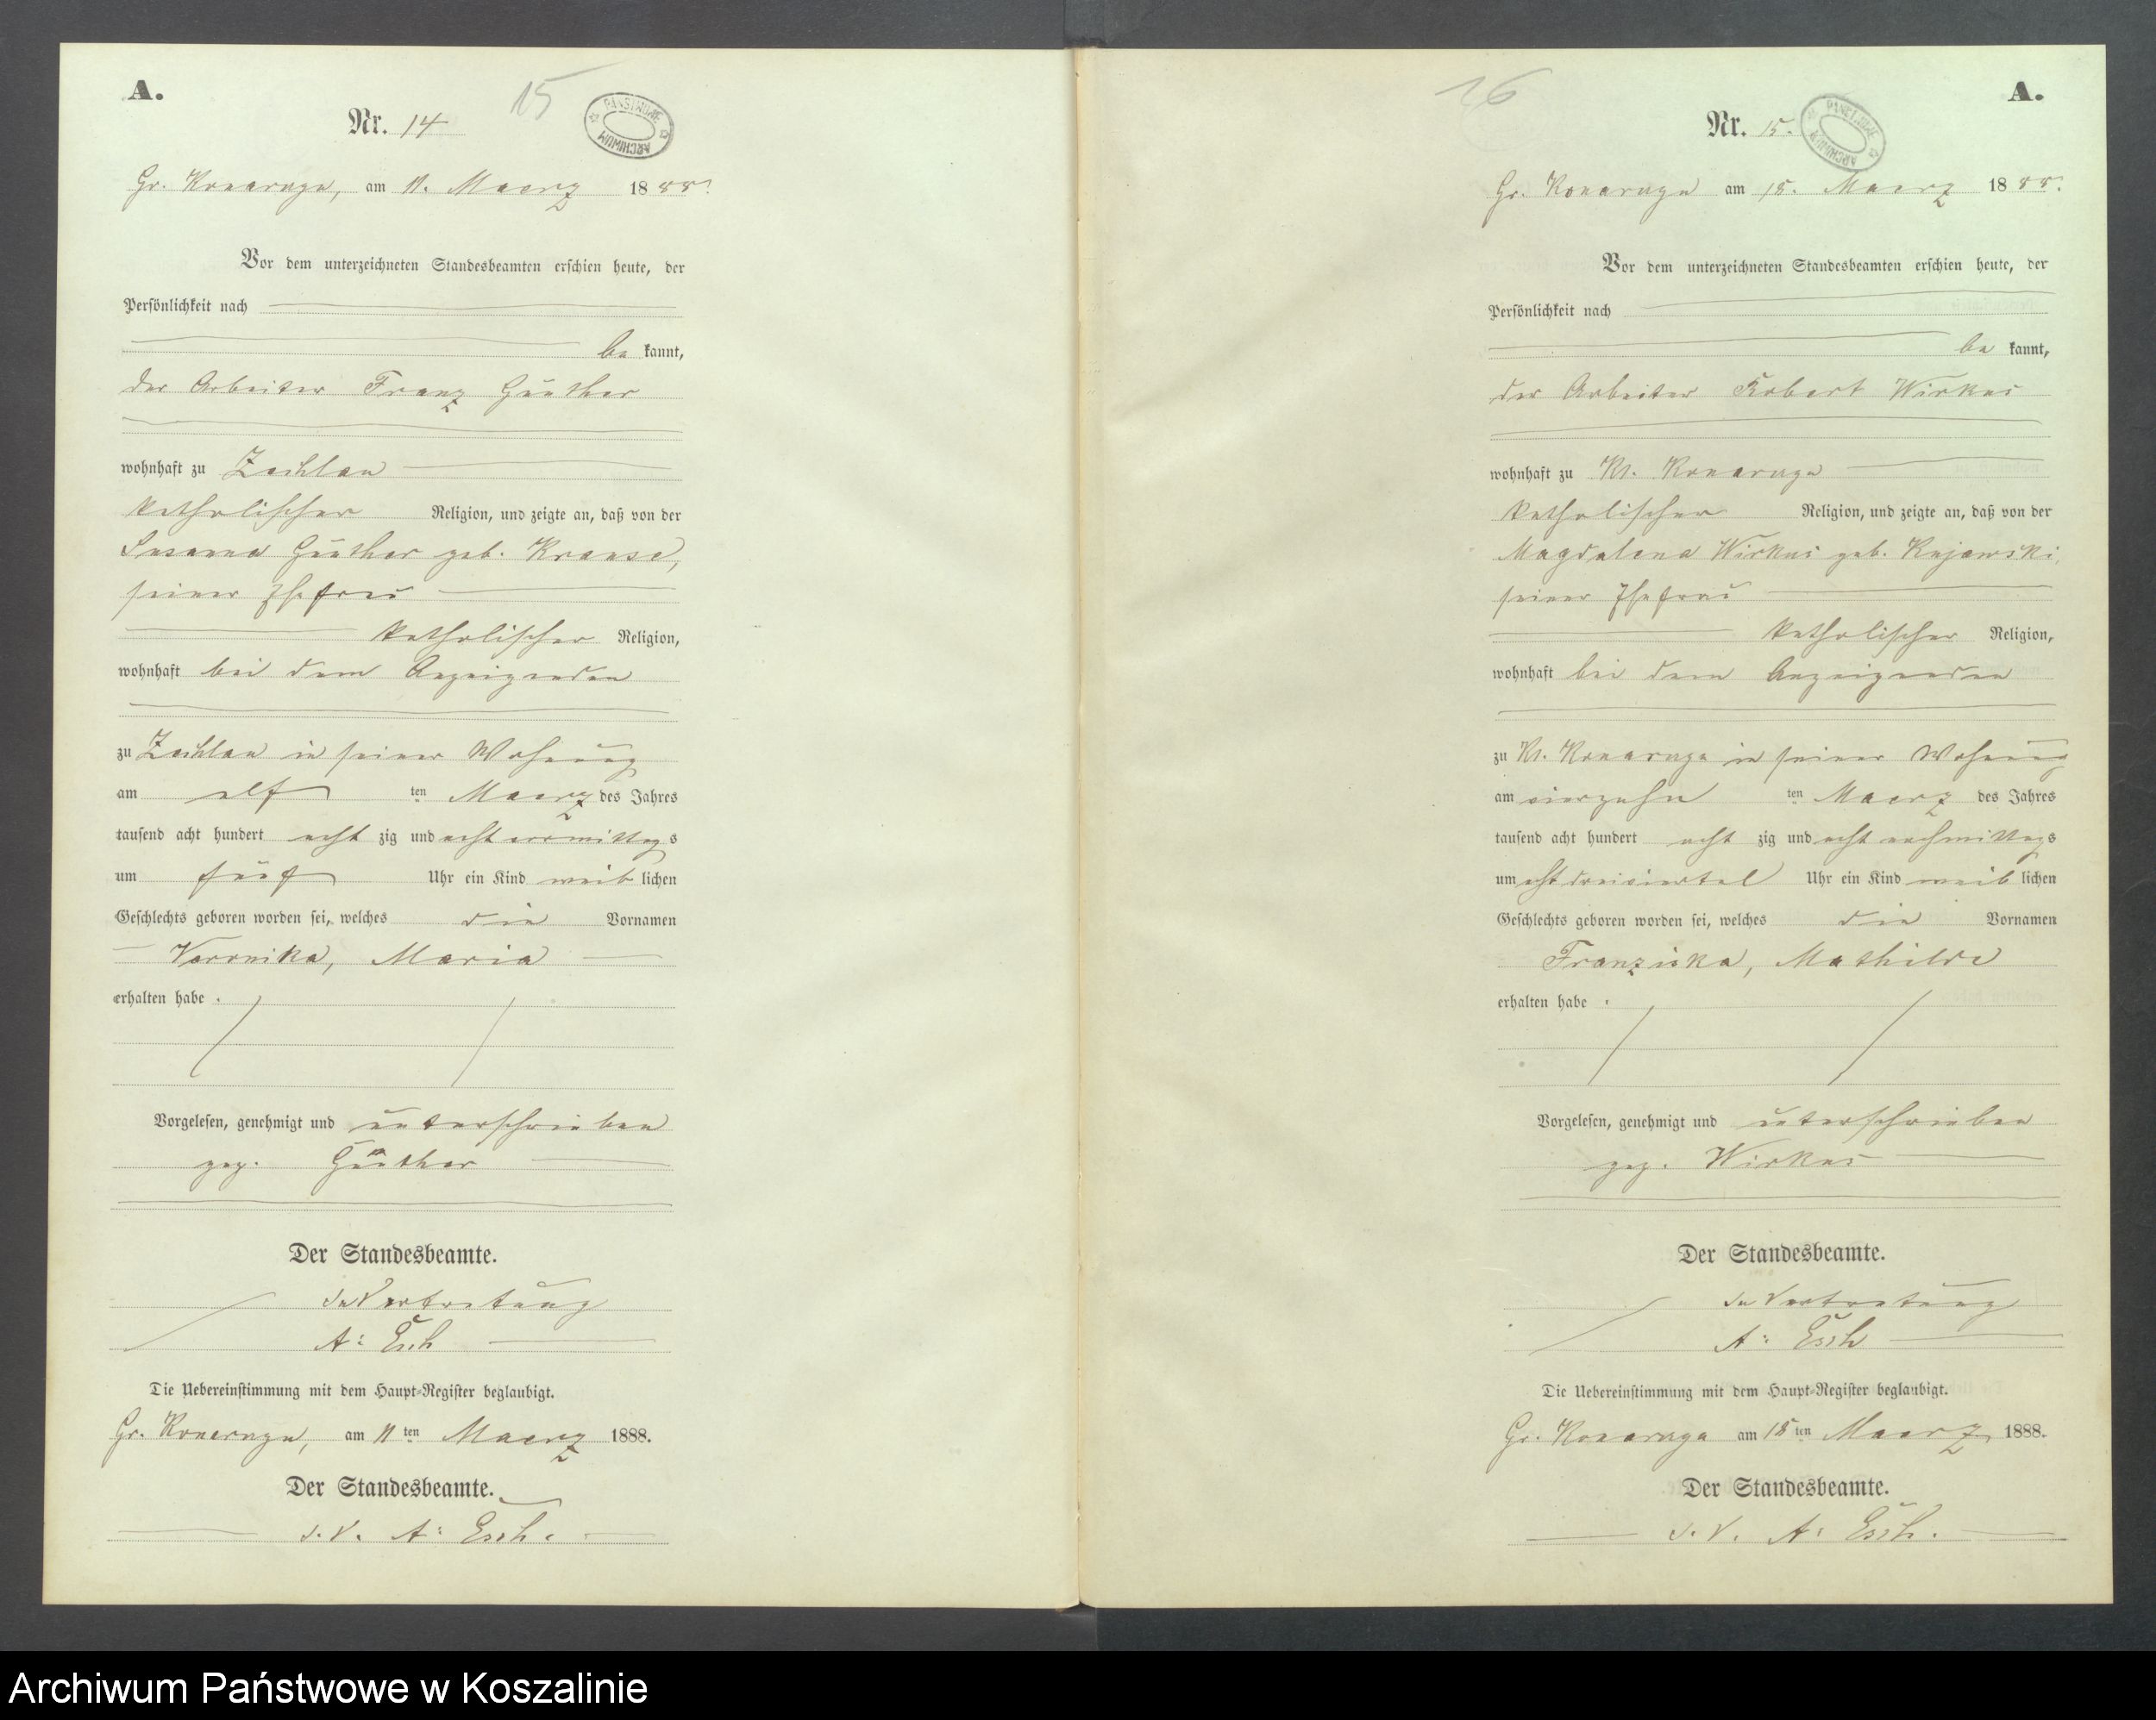 A.
15
Nr. 14
PAŃSTWOWE ARCHIWUM
Gr. Konarzyn, am 11. Maerz 1888.
Vor dem unterzeichneten Standesbeamten erschien heute, der
Persönlichkeit nach
be kannt,
der Arbeiter Franz Günther
wohnhaft zu Zechlau
katholischer Religion, und zeigte an, daß von der
Susanna Günther geb. Krause,
seiner Ehefrau
katholischer Religion,
wohnhaft bei dem Anzeigenden
zu Zechlau in seiner Wohnung
am elf ten Maerz des Jahres
tausend acht hundert acht zig und acht vormittags
um fünf Uhr ein Kind weib lichen
Geschlechts geboren worden sei, welches die Vornamen
Veronika, Maria
erhalten habe.
Vorgelesen, genehmigt und unterschrieben
gez. Günther
Der Standesbeamte.
In Vertretung
A: Esch
Die Uebereinstimmung mit dem Haupt-Register beglaubigt.
Gr. Konarzyn, am 11 ten Maerz 1888.
Der Standesbeamte.
I. V. A: Esch.
16
A.
Nr. 15.
PAŃSTWOWE ARCHIWUM
Gr. Konarzyn am 15. Maerz 1888.
Vor dem unterzeichneten Standesbeamten erschien heute, der
Persönlichkeit nach
be kannt,
der Arbeiter Robert Wirkus
wohnhaft zu Kl. Konarzyn
katholischer Religion, und zeigte an, daß von der
Magdalena Wirkus geb. Kujawski,
seiner Ehefrau
katholischer Religion,
wohnhaft bei dem Anzeigenden
zu Kl. Konarzyn in seiner Wohnung
am vierzehn ten Maerz des Jahres
tausend acht hundert acht zig und acht nachmittags
um acht dreiviertel Uhr ein Kind weib lichen
Geschlechts geboren worden sei, welches die Vornamen
Franziska, Mathilde
erhalten habe.
Vorgelesen, genehmigt und unterschrieben
gez. Wirkus
Der Standesbeamte.
In Vertretung
A: Esch
Die Uebereinstimmung mit dem Haupt-Register beglaubigt.
Gr. Konarzyn am 15 ten Maerz 1888.
Der Standesbeamte.
I. V. A: Esch.
Archiwum Państwowe w Koszalinie